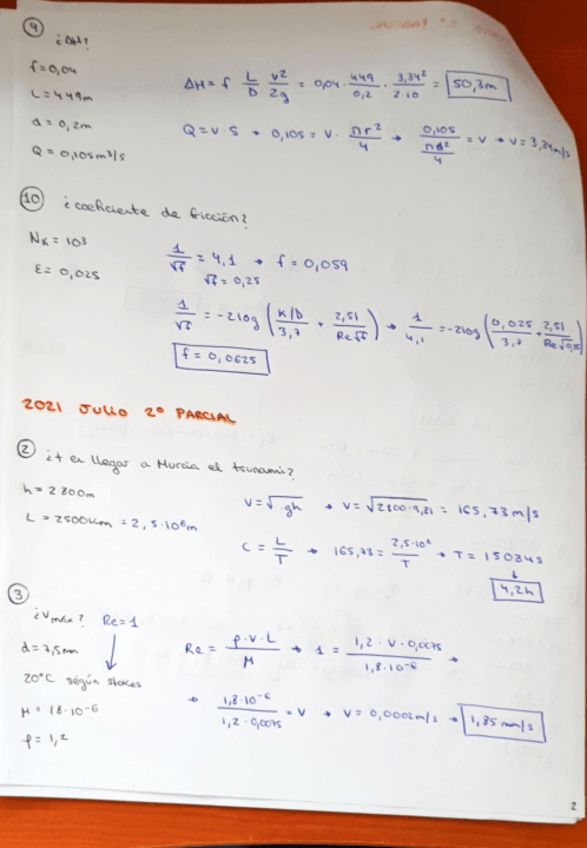 9
¿ΔH?
f=0,04
L=449m
d=0,2m
Q=0,105m³/s
ΔH = f L/D v²/2g = 0,04 · 449/0,2 · 3,34²/2·10 = 50,3m
Q = v·S → 0,105 = v · πr²/4 → 0,105/(πd²/4) = v → v = 3,34m/s
10 ¿coeficiente de fricción?
NR = 10³
ε = 0,025
1/√f = 4,1 → f = 0,059
√f = 0,25
1/√f = -2log (K/D/3,7 + 2,51/Re√f) → 1/4,1 = -2log (0,025/3,7 + 2,51/
f = 0,0625
2021 JULIO 2º PARCIAL
2 ¿t en llegar a Murcia el tsunami?
h = 2800m
L = 2500km = 2,5·10⁶m
V = √gh → V = √2800·9,81 = 165,73 m/s
C = L/T → 165,73 = 2,5·10⁶/T → T = 15084s
↓
4,2h
3
¿Vmáx? Re=1
d = 7,5mm
20°C según stokes
M = 18·10⁻⁶
ρ = 1,2
Re = ρ·v·L/M → 1 = 1,2 · V · 0,0075/1,8·10⁻⁶ →
→ 1,8·10⁻⁶/1,2·0,0075 = V → V = 0,0002m/s → 1,85 mm/s
2